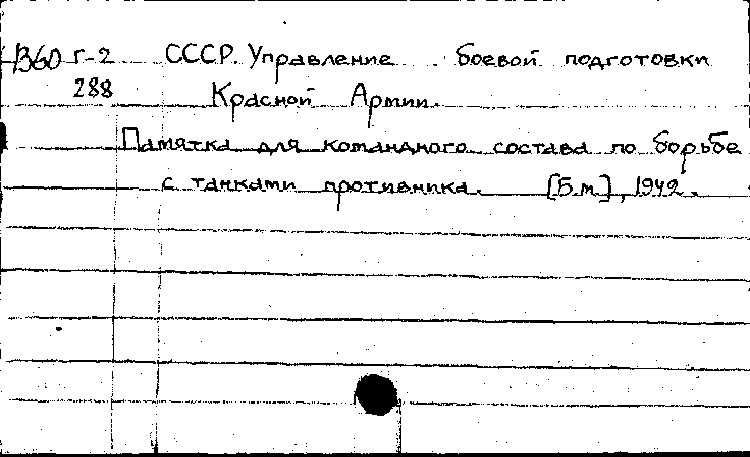 В60 г-2 СССР. Управление боевой подготовки
288 Красной Армии.
Памятка для командного состава по борьбе
с танками противника. [Б.м.], 1942.